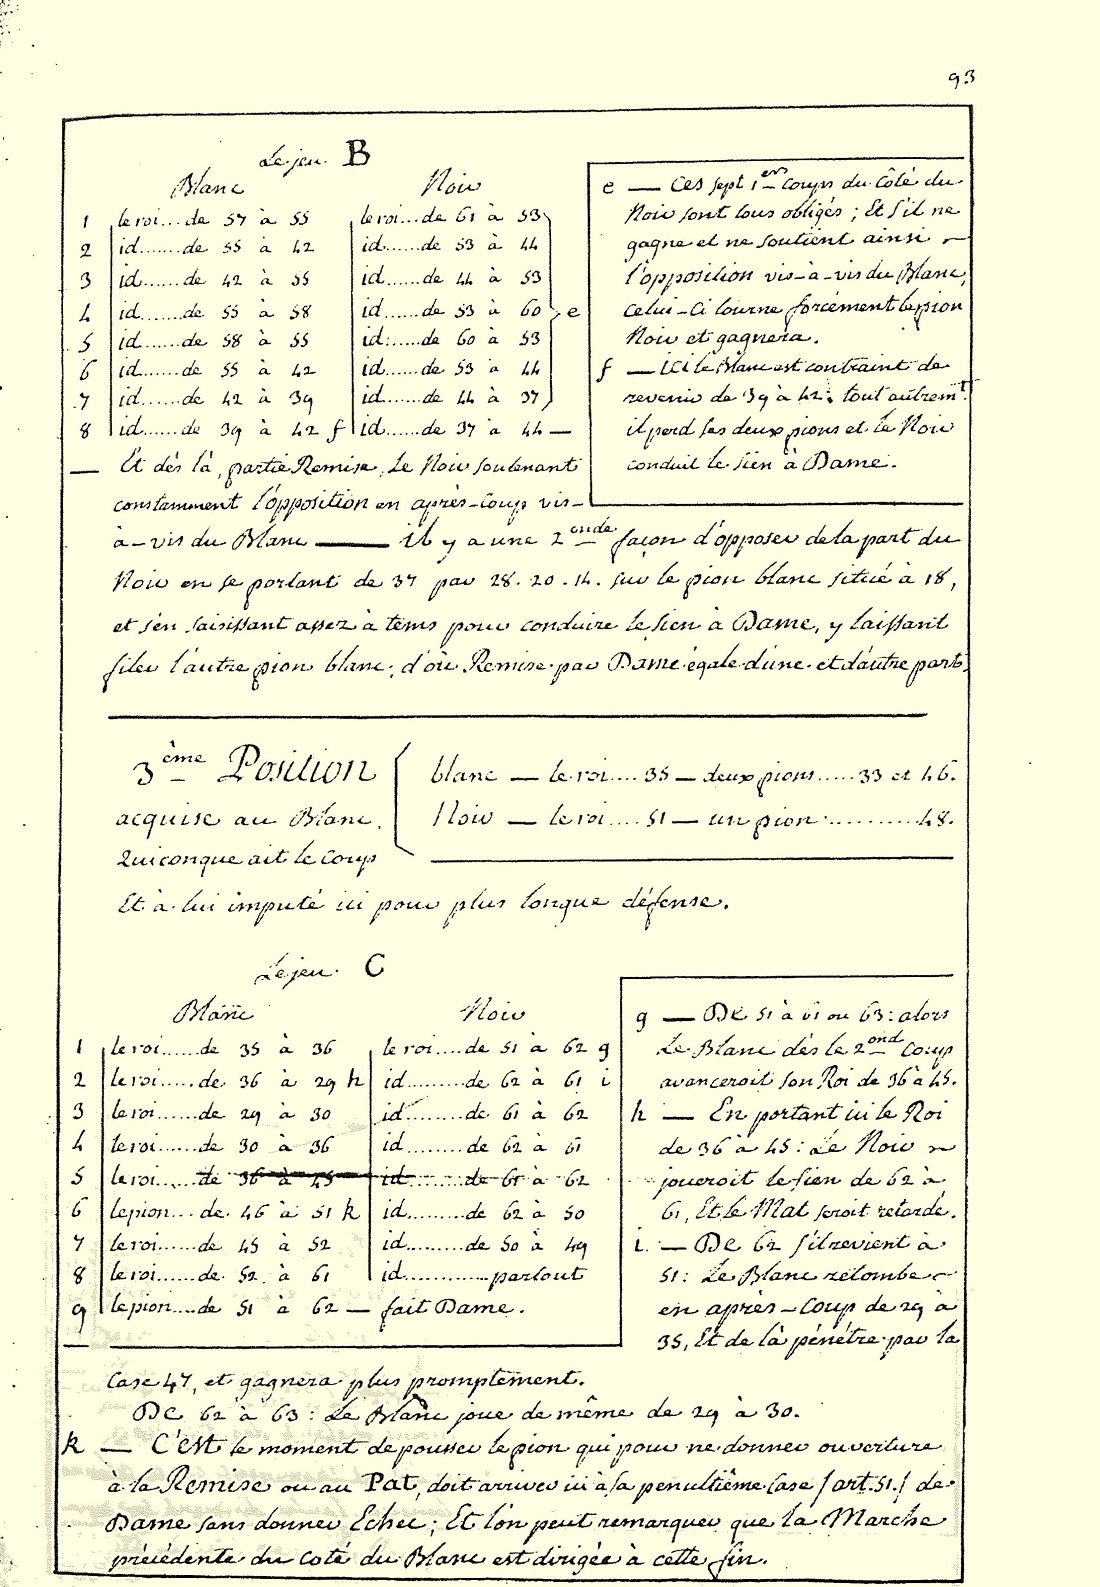 93
Le jeu B
Blanc Noir
1 le roi....de 57 à 55 le roi...de 61 à 53
2 id.......de 55 à 42 id......de 53 à 44
3 id......de 42 à 55 id......de 44 à 53
4 id.......de 55 à 58 id......de 53 à 60 e
5 id......de 58 à 55 id:.....de 60 à 53
6 id......de 55 à 42 id......de 53 à 44
7 id......de 42 à 39 id......de 44 à 37
8 id......de 39 à 42 f id......de 37 à 44 —
— Et dès là, partie Remise, Le Noir soutenant
constamment l'opposition en après-coup vis-
e — Ces sept 1ers coups du côté du
Noir sont tous obligés ; Et s'il ne
gagne et ne soutient ainsi ~
l'opposition vis-à-vis du Blanc,
celui-ci tourne forcément le pion
Noir et gagnera.
f — ici le Blanc est contraint de
revenir de 39 à 42 : tout autremt.
il perd ses deux pions et le Noir
conduit le sien à Dame.
à-vis du Blanc —— il y a une 2onde façon d'opposer de la part du
Noir en se portant de 37 par 28. 20. 14. sur le pion blanc situé à 18,
et s'en saisissant assez à tems pour conduire le sien à Dame, y laissant
filer l'autre pion blanc ; d'où Remise par Dame égale d'une et d'autre part.
3ème Position
acquise au Blanc.
Quiconque ait le coup
blanc — le roi.... 35 — deux pions.....33 et 46.
Noir — le roi....51 — un pion...........48.
Et à lui imputé ici pour plus longue défense.
Le jeu C
Blanc Noir
1 le roi.....de 35 à 36 le roi....de 51 à 62 g
2 le roi......de 36 à 29 h id........de 62 à 61 i
3 le roi......de 29 à 30 id........de 61 à 62
4 le roi......de 30 à 36 id........de 62 à 61
5 le roi.....de 36 à 45 id........de 61 à 62
6 le pion...de 46 à 51 k id........de 62 à 50
7 le roi......de 45 à 52 id.........de 50 à 49
8 le roi......de 52 à 61 id............partout
9 le pion....de 51 à 62 — fait Dame.
g — De 51 à 61 ou 63 : alors
Le Blanc dès le 2ond coup
avanceroit son Roi de 36 à 45.
h — En portant ici le Roi
de 36 à 45 : Le Noir ~
joueroit le sien de 62 à
61, Et le Mat seroit retardé.
i. — De 62 s'il revient à
51 : Le Blanc retombe ~
en après-coup de 29 à
35, Et de là pénétre par la
case 47, et gagnera plus promptement.
De 62 à 63 : Le Blanc joue de même de 29 à 30.
k — C'est le moment de pousser le pion qui pour ne donner ouverture
à la Remise ou au Pat, doit arriver ici à sa penultième case /art. 51./ de
Dame sans donner Echec ; Et l'on peut remarquer que la Marche
précédente du coté du Blanc est dirigée à cette fin.